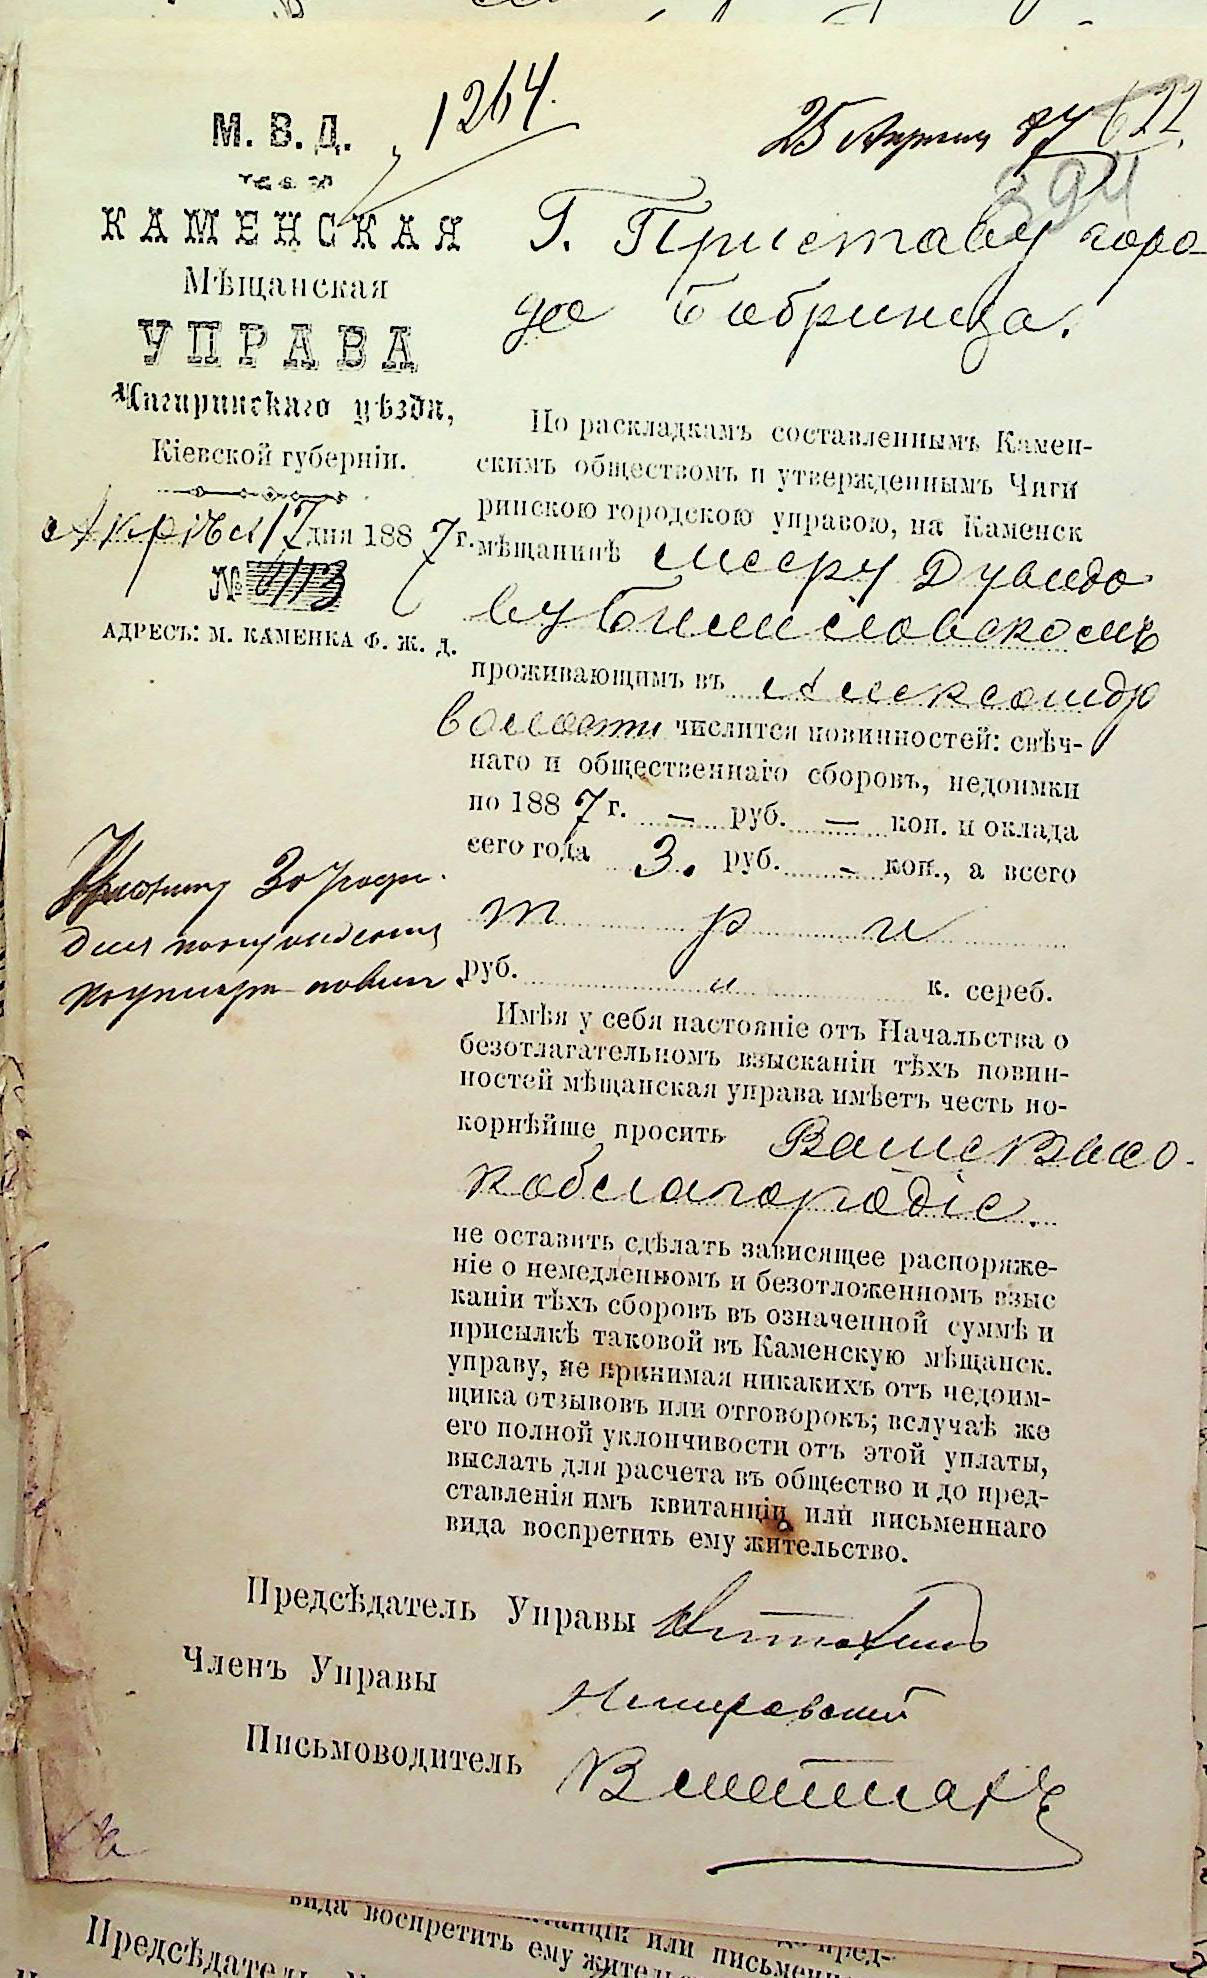 1264.
25 Апреля 87
622.
394
М. В. Д.
КАМЕНСКАЯ
Мѣщанская
УПРАВА
Чигиринскаго уѣзда,
Кіевской губерніи.
Апрѣля 17 дня 1887 г.
№ 4113
АДРЕСЪ: М. КАМЕНКА Ф. Ж. Д.
Г. Приставу горо-
да Бобринца.
По раскладкамъ составленнымъ Камен-
скимъ обществомъ и утвержденнымъ Чиги
ринскою городскою управою, на Каменск
мѣщанинѣ
проживающимъ въ Александр
волости числится повинностей: свѣч-
наго и общественнаго сборовъ, недоимки
по 1887 г. — руб. — коп. и оклада
сего года 3. руб. - коп., а всего
три
руб. " к. сереб.
Имѣя у себя настояніе отъ Начальства о
безотлагательномъ взысканіи тѣхъ повин-
ностей мѣщанская управа имѣетъ честь по-
корнѣйше просить Ваше Высо-
коблагородіе.
не оставить сдѣлать зависящее распоряже-
ніе о немедленномъ и безотложенномъ взыс
каніи тѣхъ сборовъ въ означенной суммѣ и
присылкѣ таковой въ Каменскую мѣщанск.
управу, не принимая никакихъ отъ недоим-
щика отзывовъ или отговорокъ; вслучаѣ же
его полной уклончивости отъ этой уплаты,
выслать для расчета въ общество и до пред-
ставленія имъ квитанціи или письменнаго
вида воспретить ему жительство.
Предсѣдатель Управы
Членъ Управы
Письмоводитель
вида воспретить ему жительс
Предсѣдатель